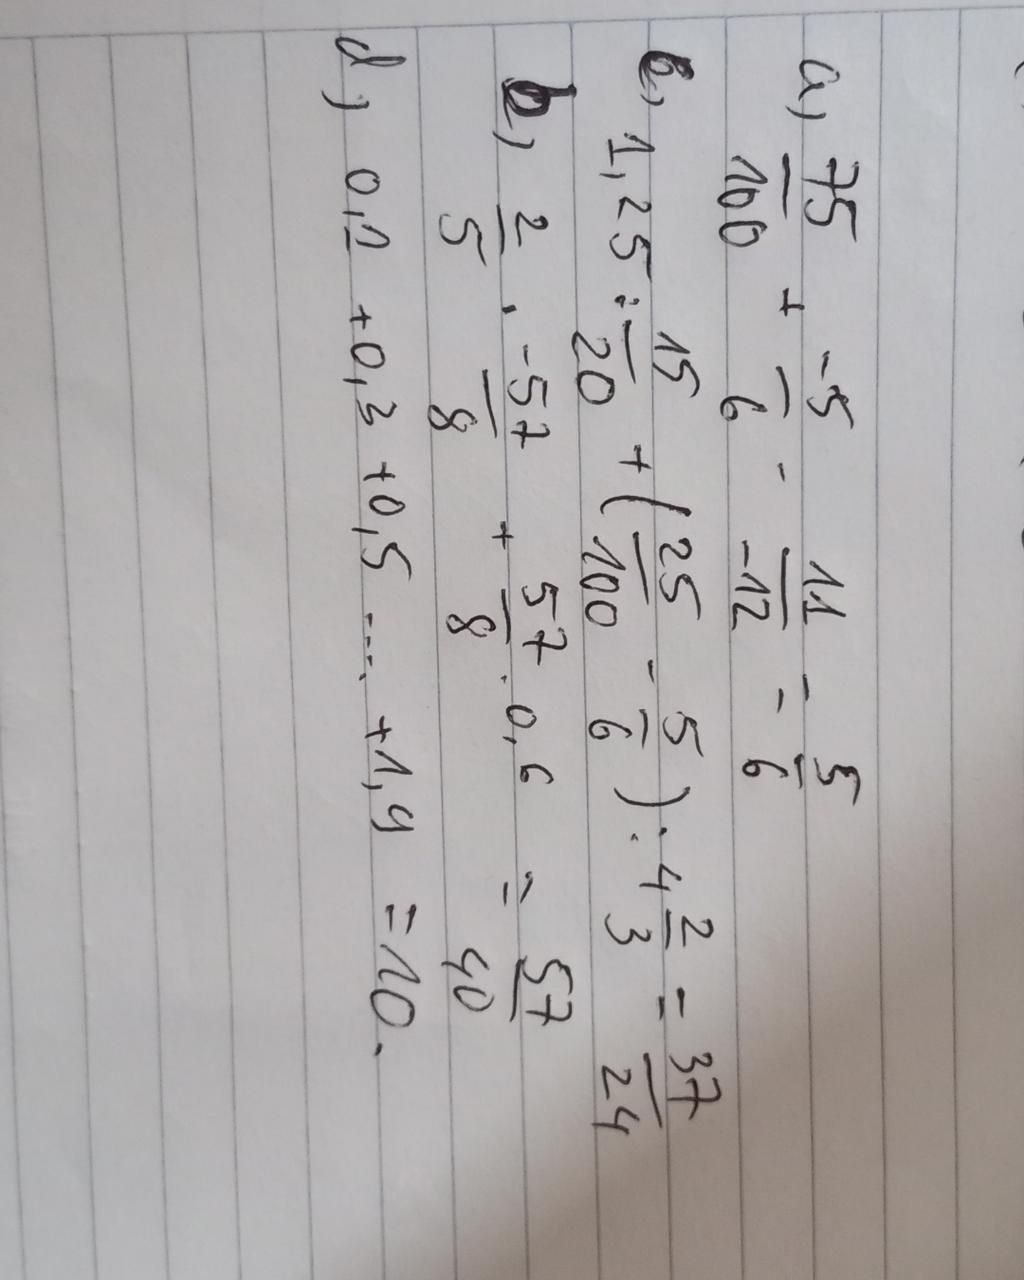 a, 75/100 + -5/6 - 11/-12 = 5/6
c, 1,25 : 15/20 + (25/100 - 5/6) : 4 2/3 = 37/24
b, 2/5 . -57/8 + 57/8 . 0,6 = 57/40
d, 0,1 + 0,3 + 0,5 .... + 1,9 = 10.